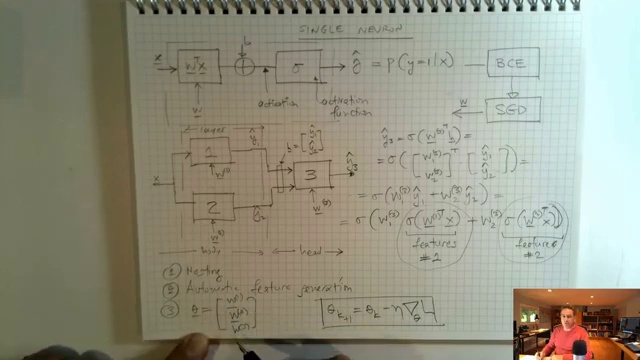 SINGLE NEURON
x wᵀx b σ ŷ = p(y=1|x) BCE
w activation activation function w SGD
layer ŷ₁ h = [ŷ₁ ŷ₂]
1 w⁽¹⁾
x 3 ŷ₃
2 w⁽²⁾ ŷ₂ w⁽³⁾
head
ŷ₃ = σ(w⁽³⁾ᵀ h) =
= σ([w₁⁽³⁾ w₂⁽³⁾]ᵀ [ŷ₁ ŷ₂]) =
= σ(w₁⁽³⁾ ŷ₁ + w₂⁽³⁾ ŷ₂) =
= σ(w₁⁽³⁾ σ(w⁽¹⁾ᵀx) + w₂⁽³⁾ σ(w⁽²⁾ᵀx))
features #2 features #2
① Nesting
② Automatic feature generation
③ θ = [w⁽¹⁾ w⁽²⁾ w⁽³⁾] θₖ₊₁ = θₖ - η ∇θ L